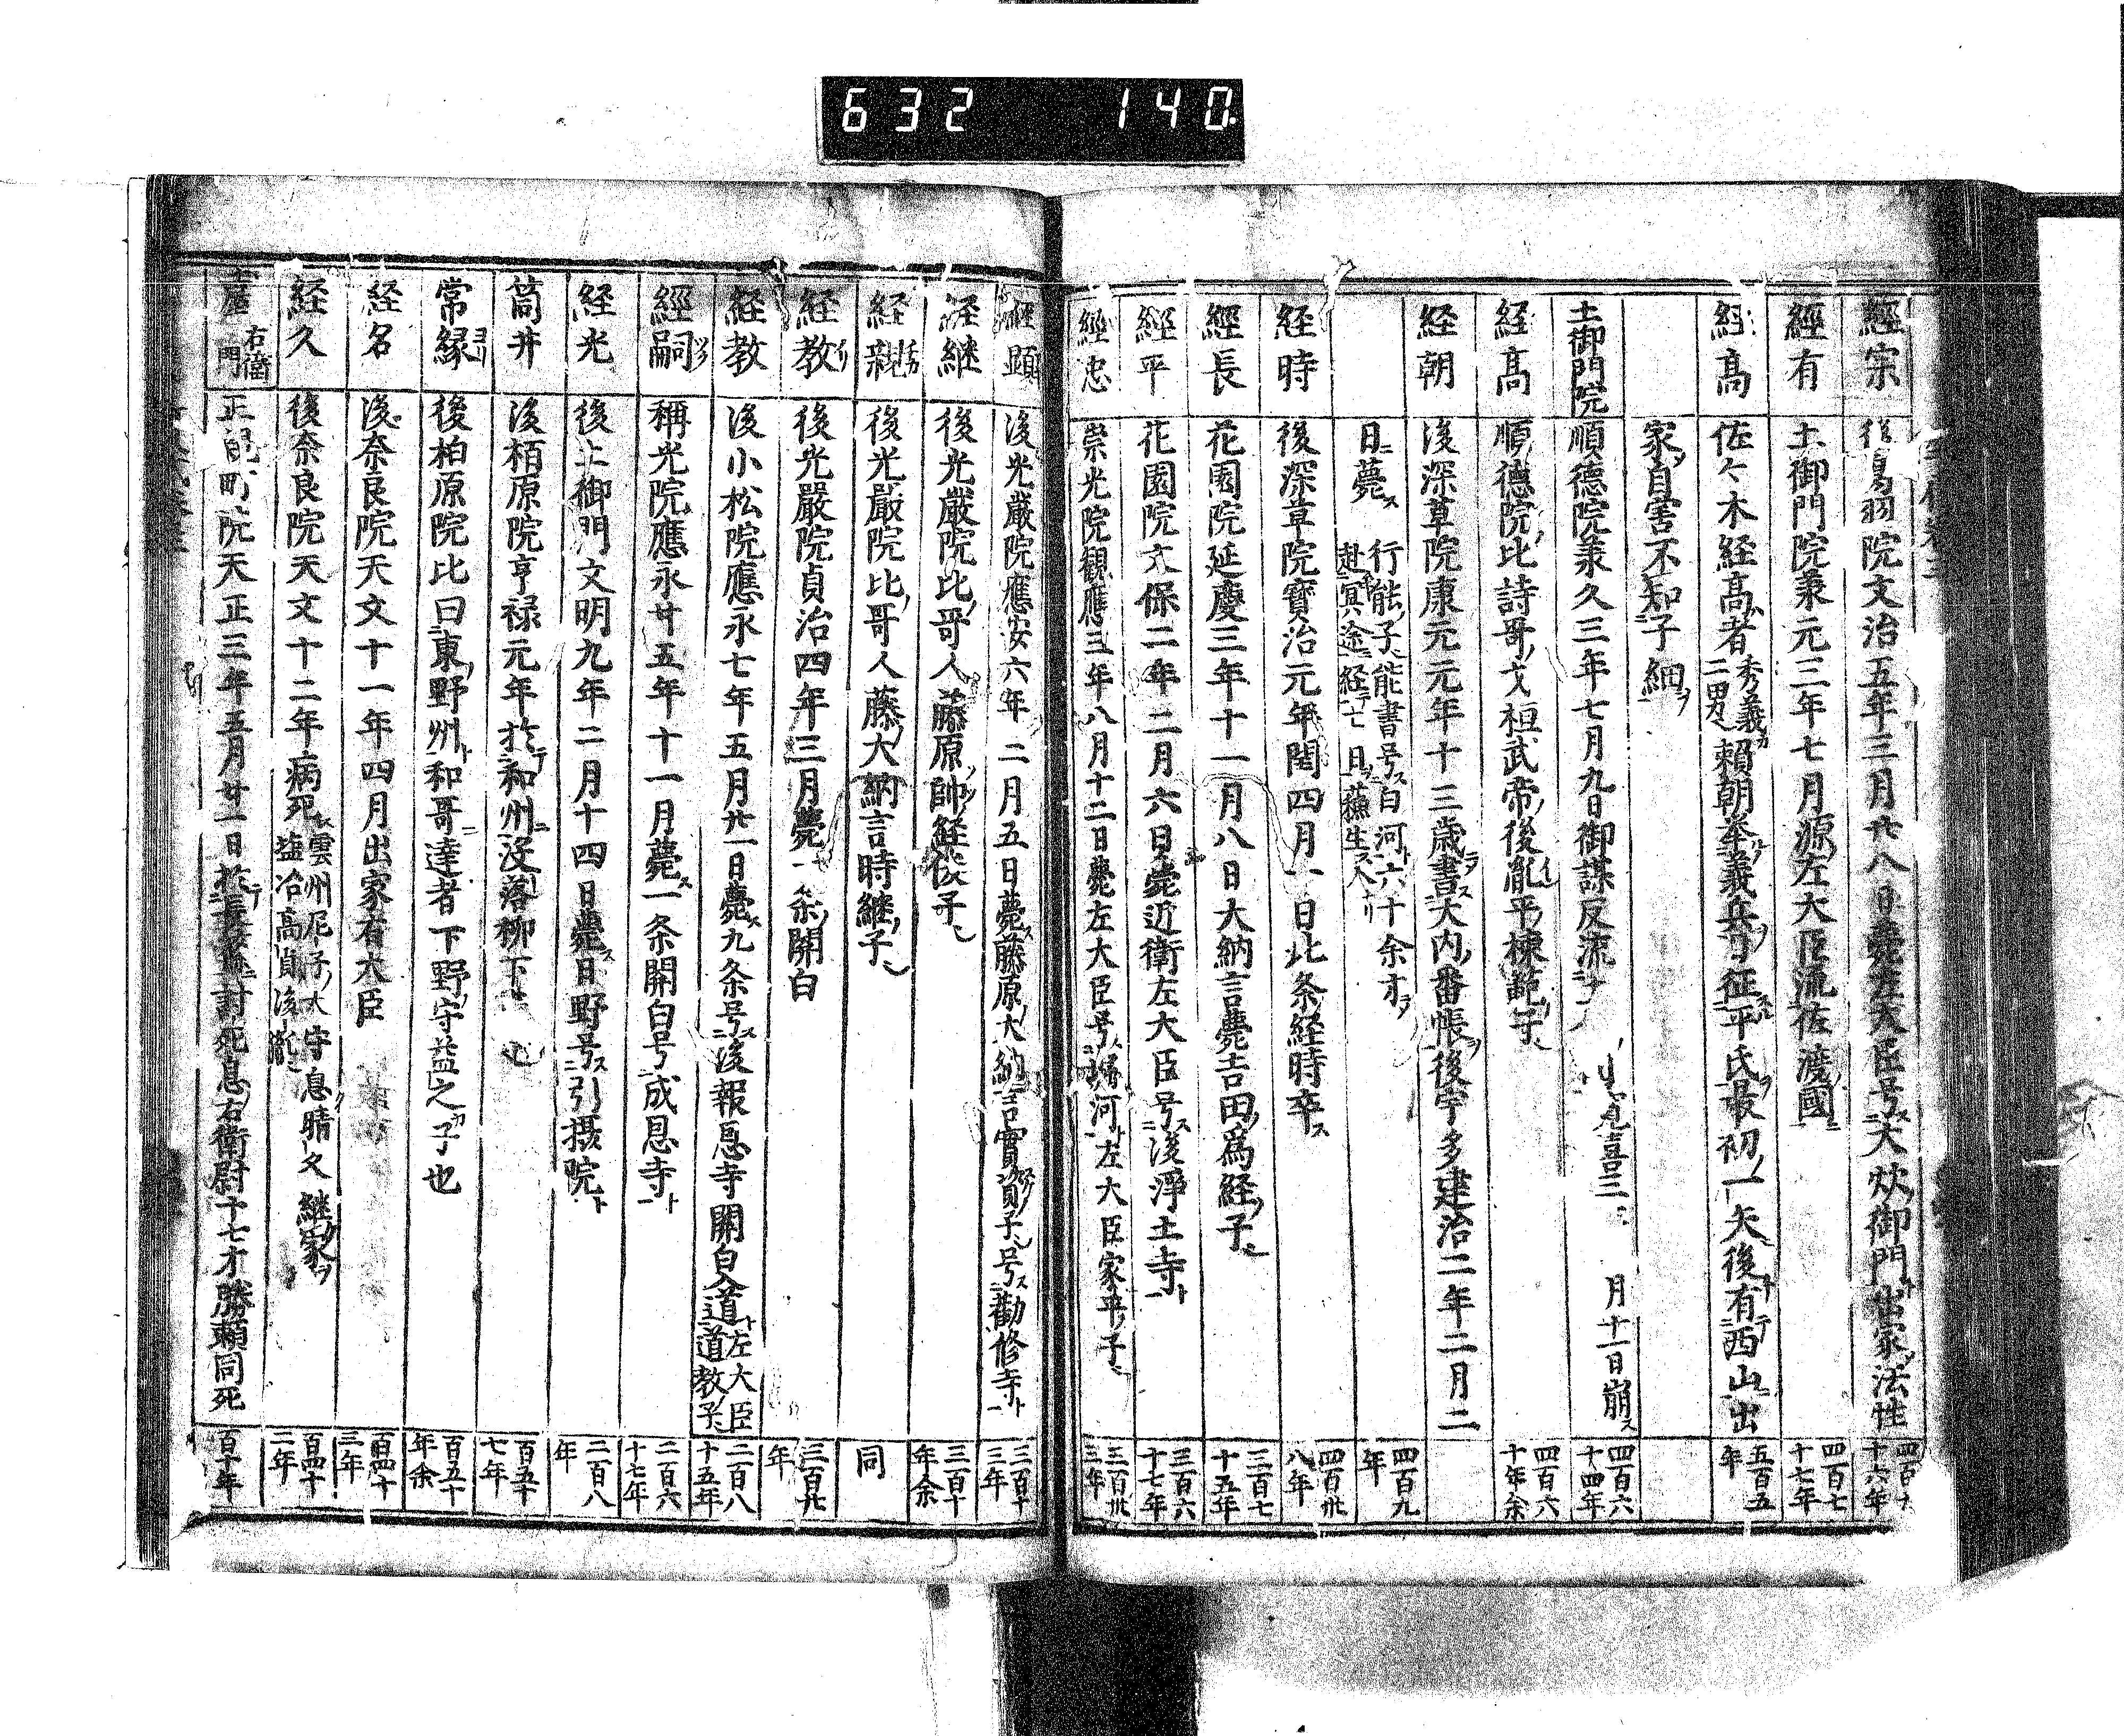 632 140
經宗 後鳥羽院文治五年三月廿八日薨左大臣号ス大炊御門ト出家法性 四百 十六年
經有 土御門院承元三年七月源ノ左大臣流佐渡ノ國ニ 四百七十七年
経高 佐々木経高者秀義カ二男ヽ頼朝挙義兵ヲ日征平氏ヲ最初ノ一矢後有テ西山ニ出 五百五年
家ヲ自害不知子細ヲ
土御門院 順徳院承久三年七月九日御謀反流 寛喜三 月十一日崩ス 四百六十四年
経高 順徳院ノ比詩哥ノ文桓武帝ノ後胤平ノ棟範ノ子 四百六十年余
経朝 後深草院康元元年十三歳書ス大内ノ番帳ヲ後宇多建治二年二月二
日ニ薨ス 行能ノ子能書号ス白河ト六十余才ヲ赴冥途ニ経テ七日ヲ蘇生ス 四百九年
経時 後深草院寳治元年閏四月一日北条経時卒ス 四百卅八年
經長 花園院延慶三年十一月八日大納言薨吉田ノ爲経ノ子 三百七十五年
經平 花園院文保二年二月六日薨近衛左大臣号ス後淨土寺ト 三百六十七年
經忠 崇光院観應三年八月十二日薨左大臣号ス堀河ト左大臣家平ノ子 三百卅三年
經顕 後光厳院應安六年二月五日薨ス藤原ノ大納言實資ノ子号ス勸修寺ト 三百十三年
経継 後光厳院ノ比ノ哥人藤原ノ帥ノ経俊子 三百十年余
経親 後光嚴院ノ比ノ哥人藤ノ大納言時継ノ子 同
経教 後光嚴院貞治四年三月薨一条ノ関白 三百廿年
経教 後小松院應永七年五月廿一日薨ス九条号ス後報恩寺関白入道ト左大臣道教ノ子 二百八十五年
經嗣 稱光院應永廿五年十一月薨ス一条関白号成恩寺ト 二百六十七年
経光 後土御門文明九年二月十四日薨ス日野号ス引摂院ト 二百八年
筒井 後栢原院亨禄元年於テ和州ニ没落柳下 也 百五十七年
常縁 後柏原院比曰東ノ野州ト和哥ニ達者下野ノ守益之カ子也 百五十年余
経名 後奈良院天文十一年四月出家右大臣 百四十三年
経久 後奈良院天文十二年病死ス雲州尼子ノ大守息晴久継家ヲ塩冶高貞後胤 百四十二年
土屋右衛門 正親町院天正三年五月廿一日於テ長篠ニ討死息ノ右衛尉十七才勝頼同死 百十年